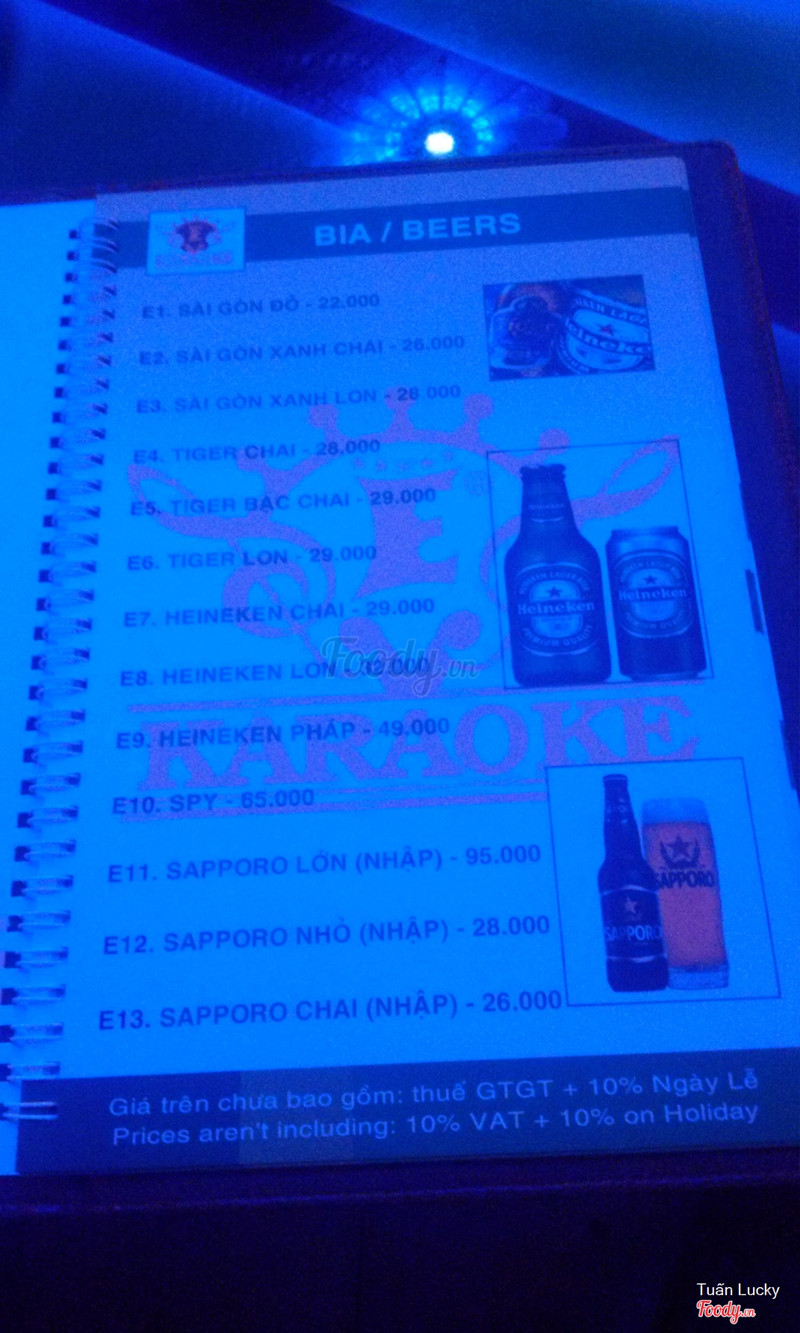 BIA / BEERS
E1. SÀI GÒN ĐỎ - 22.000
E2. SÀI GÒN XANH CHAI - 26.000
E3. SÀI GÒN XANH LON - 26.000
E4. TIGER CHAI - 28.000
E5. TIGER BẠC CHAI - 29.000
E6. TIGER LON - 29.000
E7. HEINEKEN CHAI - 29.000
E8. HEINEKEN LON - 32.000
Foody.vn
E9. HEINEKEN PHÁP - 49.000
KARAOKE
E10. SPY - 65.000
E11. SAPPORO LỚN (NHẬP) - 95.000
E12. SAPPORO NHỎ (NHẬP) - 28.000
E13. SAPPORO CHAI (NHẬP) - 26.000
Heineken
Heineken
PREMIUM QUALITY
SAPPORO
SAPPORO
Giá trên chưa bao gồm: thuế GTGT + 10% Ngày Lễ
Prices aren't including: 10% VAT + 10% on Holiday
Tuấn Lucky
Foody.vn